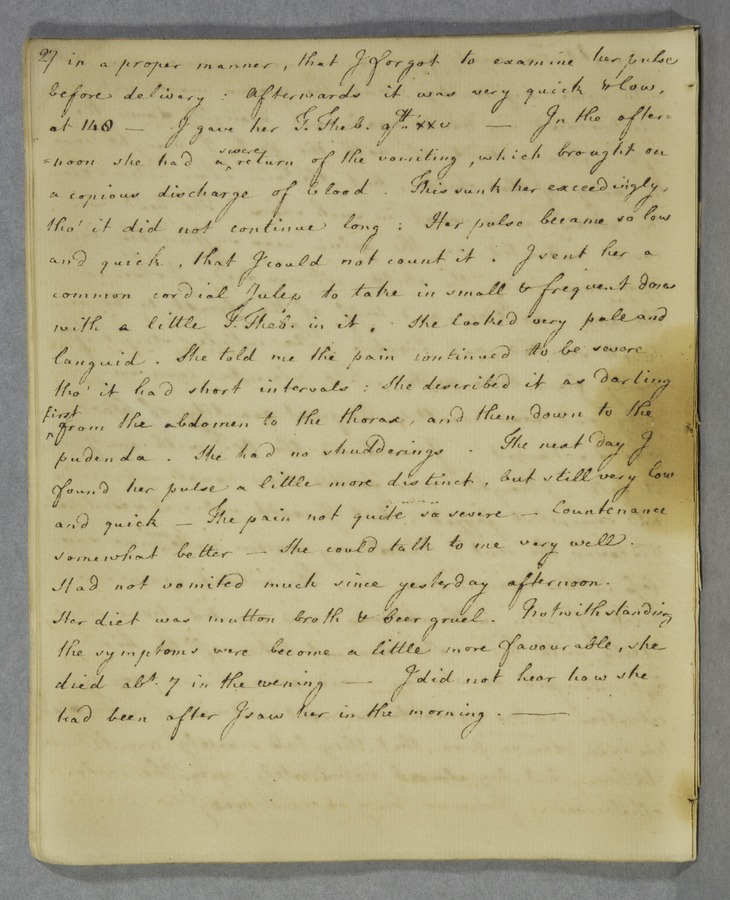 27 in a proper manner, that I forgot to examine her pulse
before delivery : Afterwards it was very quick & low,
at 140 — I gave her T. Theb. gtt. xxv — In the after=
=noon she had a severe return of the vomiting, which brought on
a copious discharge of blood . This sunk her exceedingly,
tho' it did not continue long : Her pulse became so low
and quick, that I could not count it . I sent her a
common cordial Julep to take in small & frequent doses
with a little T. Theb. in it . She looked very pale and
languid . She told me the pain continued to be severe
tho' it had short intervals : She described it as darting
first from the abdomen to the thorax, and then down to the
pudenda . She had no shudderings . The next day I
found her pulse a little more distinct, but still very low
and quick — The pain not quite so severe — Countenance
somewhat better — She could talk to me very well .
Had not vomited much since yesterday afternoon .
Her diet was mutton broth & beer gruel . Notwithstanding
the symptoms were become a little more favourable, she
died abt. 7 in the evening — I did not hear how she
had been after I saw her in the morning . —